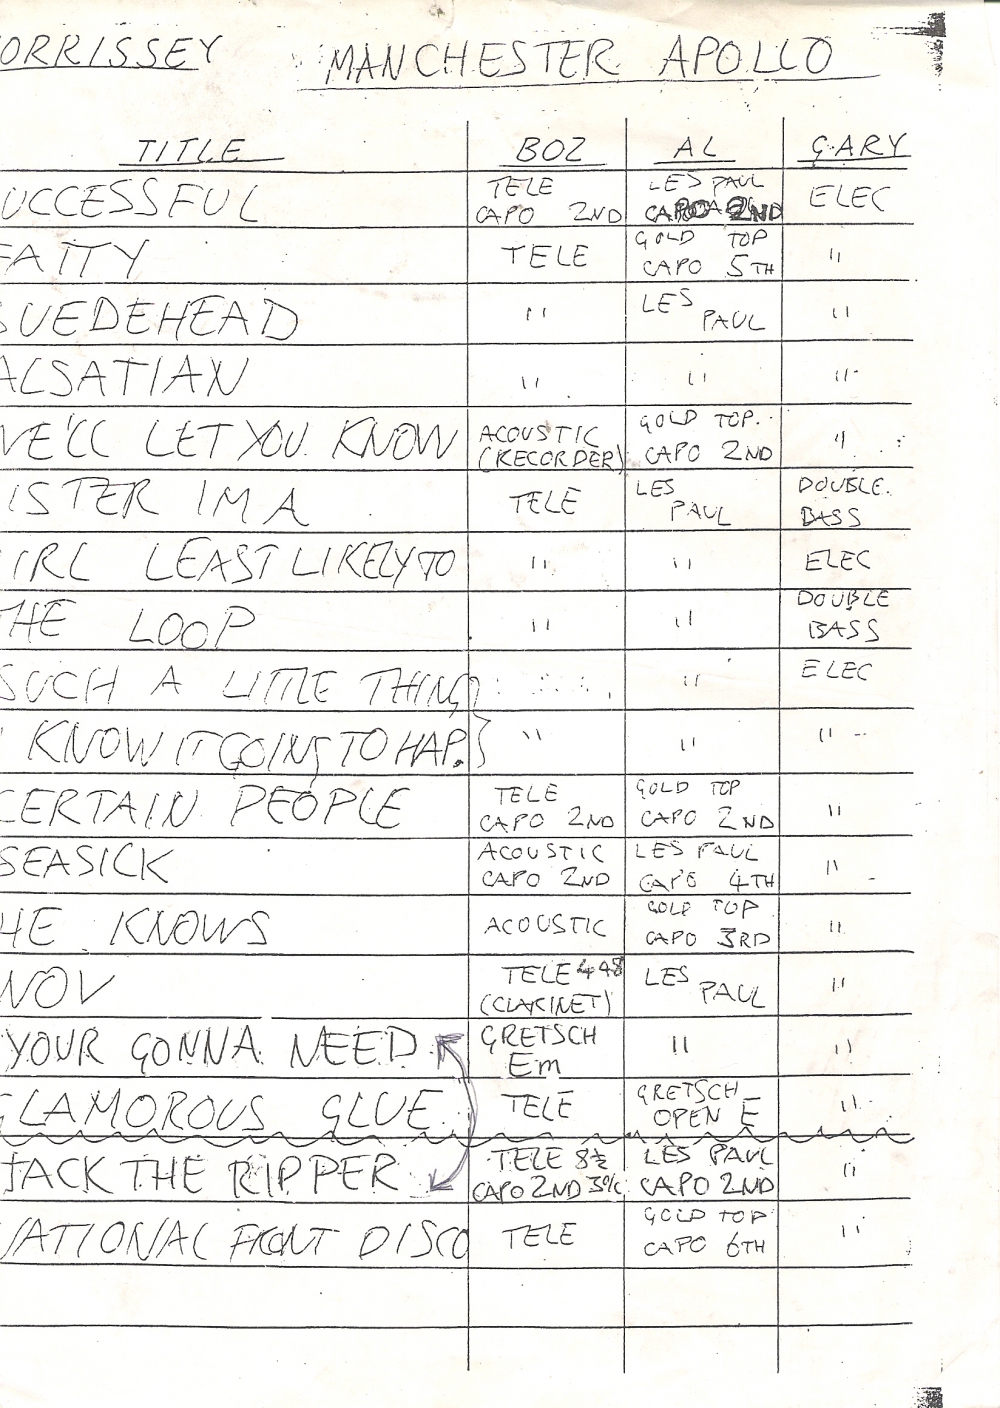 ORRISSEY MANCHESTER APOLLO
TITLE BOZ AL GARY
UCCESSFUL TELE CAPO 2ND LES PAUL CAPO 2ND ELEC
FATTY TELE GOLD TOP CAPO 5TH "
SUEDEHEAD " LES PAUL "
ALSATIAN " " "
WE'LL LET YOU KNOW ACOUSTIC (RECORDER) GOLD TOP. CAPO 2ND "
ISTER IM A TELE LES PAUL DOUBLE. BASS
IRL LEAST LIKELY TO " " ELEC
THE LOOP " " DOUBLE BASS
SUCH A LITTLE THING " ELEC
I KNOW IT GOING TO HAP. " " "
CERTAIN PEOPLE TELE CAPO 2ND GOLD TOP CAPO 2ND "
SEASICK ACOUSTIC CAPO 2ND LES PAUL CAPO 4TH "
HE KNOWS ACOUSTIC GOLD TOP CAPO 3RD "
NOV TELE 448 (CLARINET) LES PAUL "
YOUR GONNA NEED GRETSCH Em " "
GLAMOROUS GLUE TELE GRETSCH OPEN E "
JACK THE RIPPER TELE 8½ CAPO 2ND LES PAUL CAPO 2ND "
NATIONAL FRONT DISCO TELE GOLD TOP CAPO 6TH "